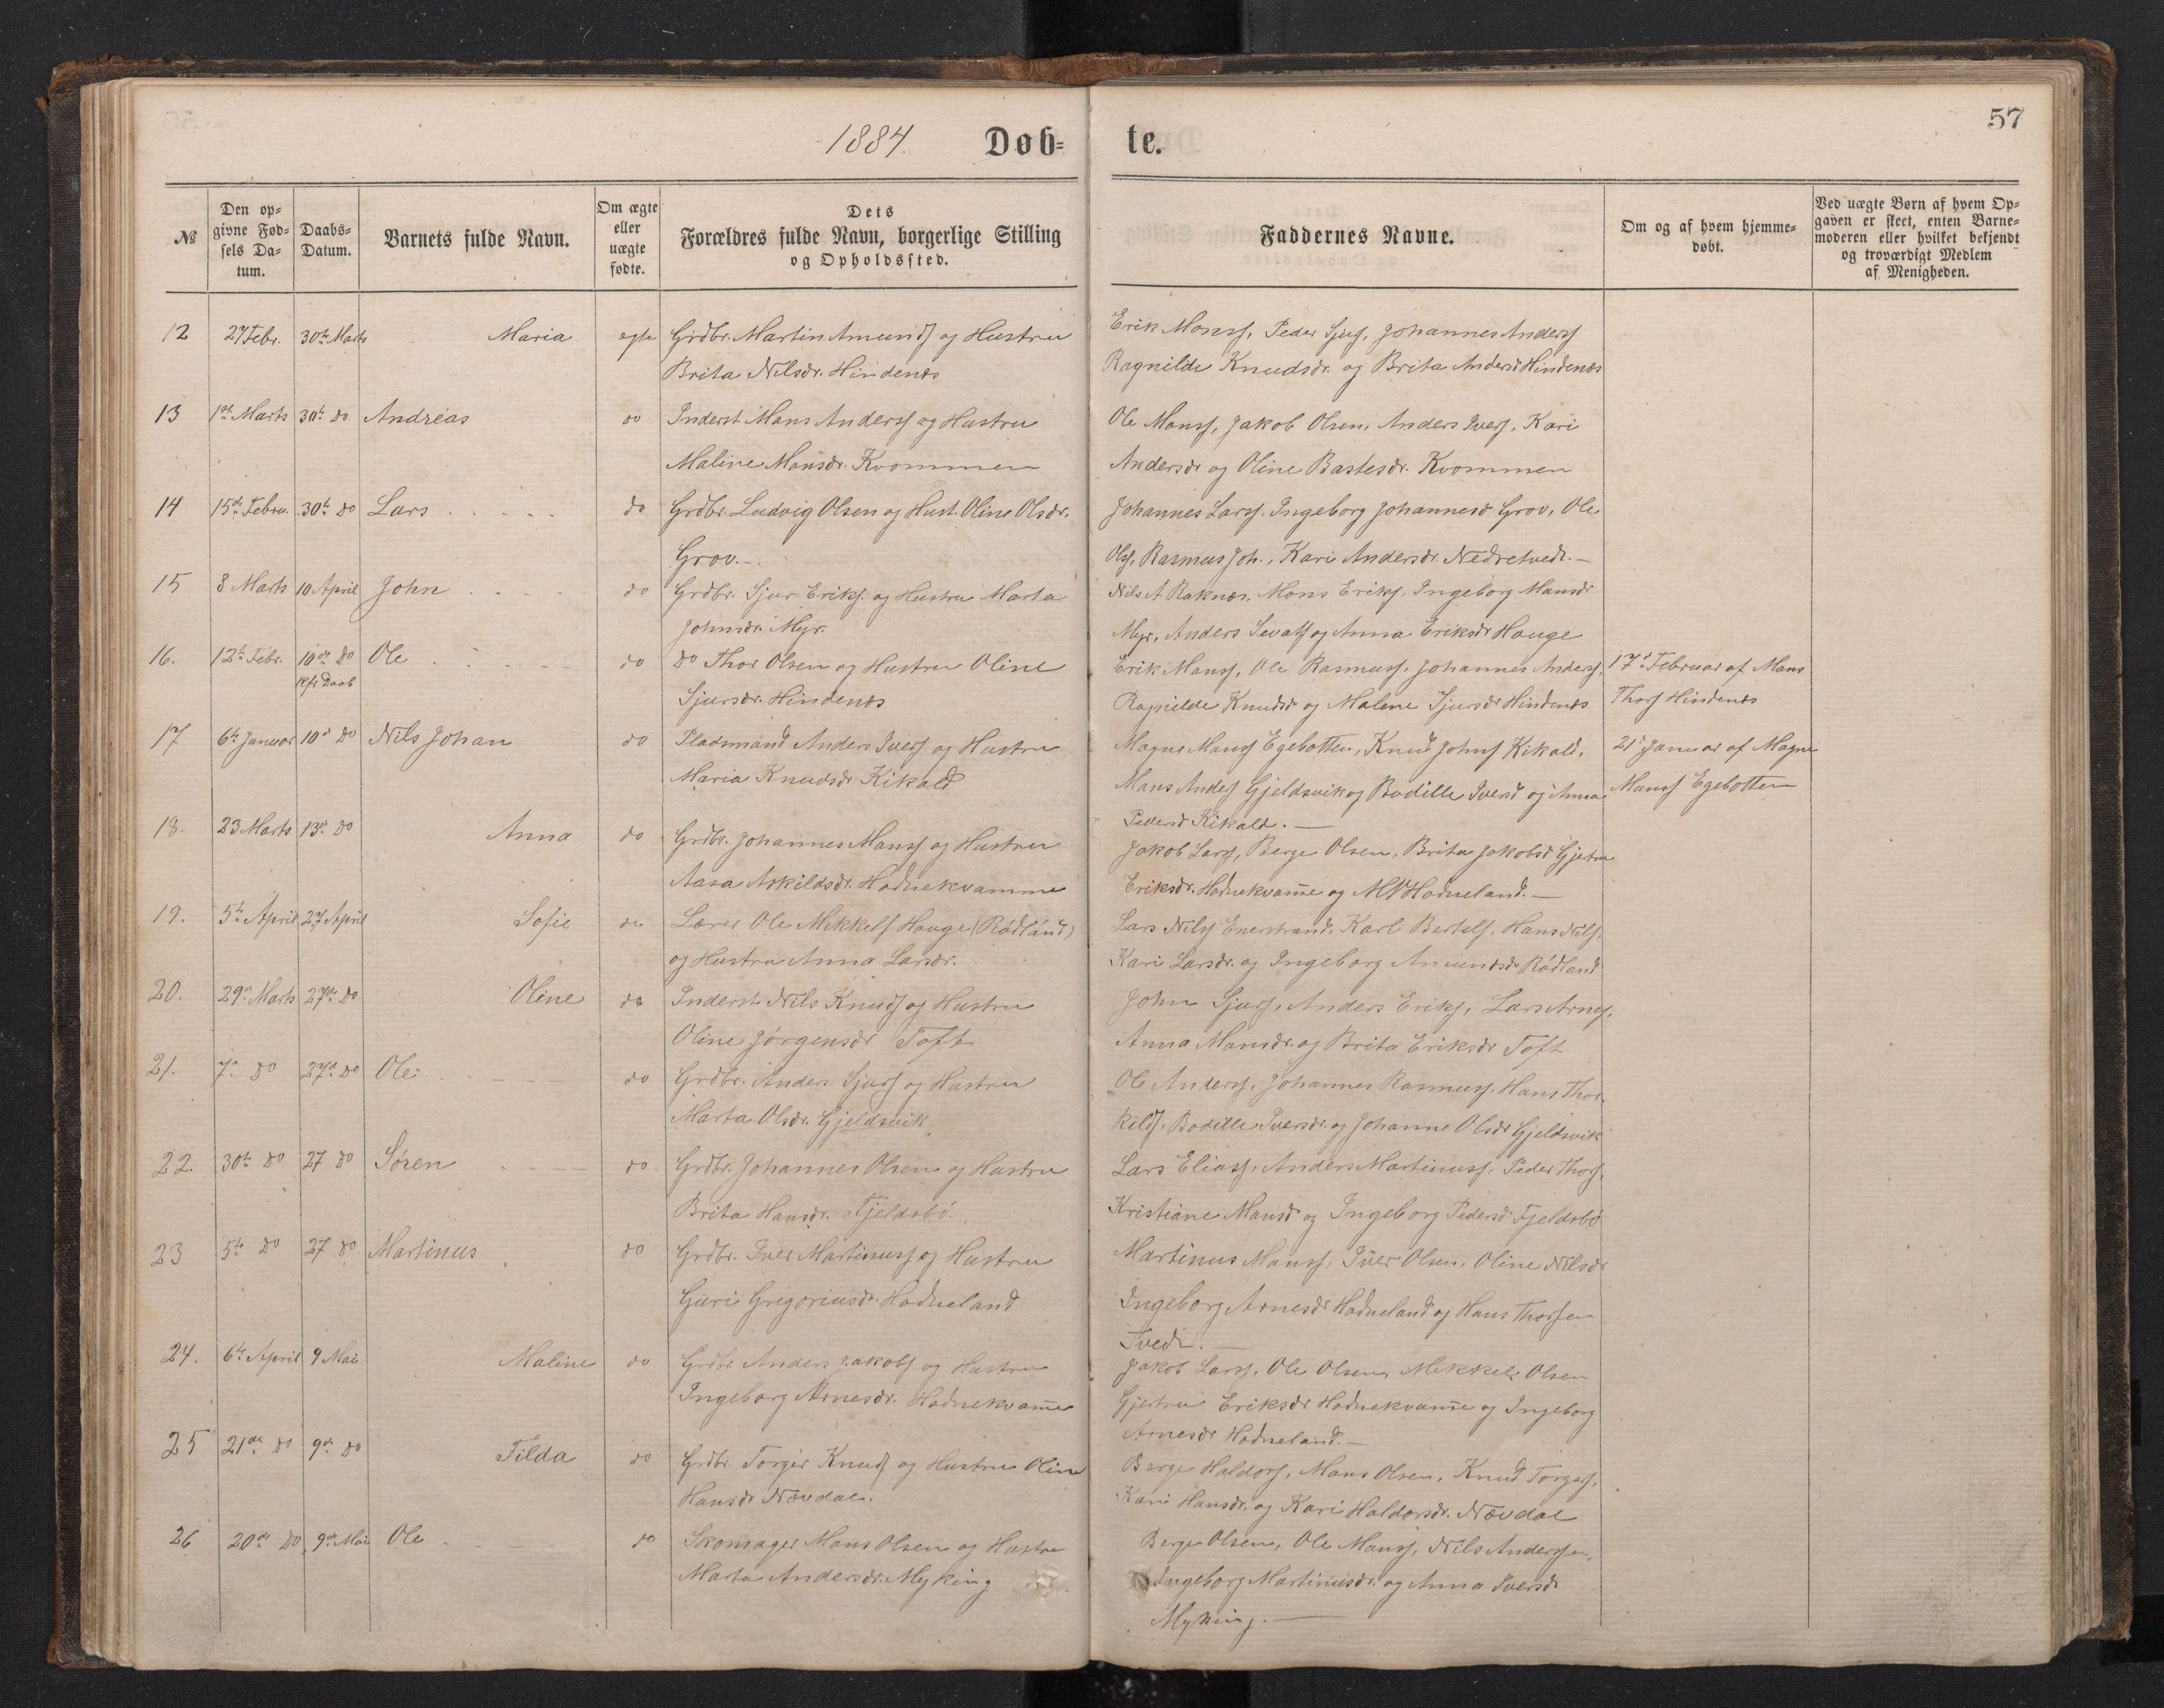 57
1884. Døb= te.
№
Den op=
givne Fød=
sels Da=
tum.
Daabs=
Datum.
Barnets fulde Navn.
Om ægte
eller
uægte
fødte.
Dets
Forældres fulde Navn, borgerlige Stilling
og Opholdssted.
Faddernes Navne.
Om og af hvem hjemme=
døbt.
Ved uægte Børn af hvem Op=
gaven er skeet, enten Barne=
moderen eller hvilket bekjendt
og troværdigt Medlem
af Menigheden.
12 27 Febr. 30te Marts Maria egte Grdbr. Martin Amunds og Hustru
Brita Nilsdr. Hindenes
Erik Monss, Peder Sjurs, Johannes Anderss
Ragnilde Knudsdr. og Brita Andersd Hindenes
13 1ste Marts 30te do Andreas do Inderst Mans Anderss og Hustru
Maline Mansdr. Kvommen
Ole Monss, Jakob Olsen, Anders Ivers, Kari
Andersdr og Oline Bastesdr. Kvommen
14 15de Febru. 30te do Lars do Grdbr. Ludvig Olsen og Hust. Oline Olsdr.
Grov.-
Johannes Larss, Ingeborg Johannesd Grov, Ole
Ols, Rasmus Joh., Kari Andersdr. Nedretvedt.-
15 8 Marts 10 April John do Grdbr. Sjur Eriks. og Hustru Marta
Johnsdr. Myr.
Nils A Raknes, Mons Eriks, Ingeborg Mansdr
Myr, Anders Sevats og Anna Eriksdr Hauge
16. 12te Febr. 10de do Ole do do Thor Olsen og Hustru Oline
Kfr Daab
Sjursdr. Hindenes
Erik Manss, Ole Rasmuss, Johannes Anderss,
Ragnilde Knudsd og Malene Sjursdr Hindenes
17d Februar af Mons
Thors Hindenes
17 6te Januar 10d do Nils Johan do Pladsmand Anders Ivers og Hustru
Maria Knudsdr Kikald
Magne Manss Egebotten, Knud Johns Kikald,
Mans Anders Gjeldsvik og Bodille Iversd og Anna
Pedersd Kikald. —
21d Januar af Magne
Manss Egebotten
18. 23 Marts 13d do Anna do Grdbr. Johannes Manss og Hustru
Aasa Askildsdr. Hodnekvamme
Jakob Larss, Berge Olsen, Brita Jakobsd Gjertru
Eriksdr. Hodnekvam̄e og Hodneland. —
19. 5te April 27 April Sofie do Lærer Ole Mikkels Hauge (Rødland)
og Hustru Anna Larsdr.
Lars Nils Enerstrand, Karl Bertels, Hans Nils,
Kari Larsdr. og Ingeborg Amundsdr Rødland
20. 29de Marts 27de do Oline do Inderst Nils Knuds og Hustru
Oline Jørgensdr Toft
John Sjurs, Anders Eriks, Lars Arnes,
Anna Mansdr. og Brita Eriksdr Toft
21. 7de do 27de do Ole do Grdbr. Anders Sjurs og Hustru
Marta Olsdr. Gjeldsvik
Ole Anderss, Johannes Rasmuss, Hans Thor-
kilds, Bodille Iversdr. og Johanne Olsdr Gjeldsvik
22. 30te do 27 do Søren do Grdbr. Johannes Olsen og Hustru
Brita Hansdr. Fjeldsbø.
Lars Eliass, Anders Martinuss, Peder Thors,
Kristiane Mansd og Ingeborg Pedersd Fjeldsbø
23 5te do 27 do Martinus do Grdbr. Iver Martinuss og Hustru
Guri Gregoriusdr. Hodneland
Martinus Manss, Iver Olsen, Oline Nilsdr
Ingeborg Arnesdr Hodneland og Hans Thorsen
Tvedt. —
24. 6te April 9 Mai Maline do Grdbr. Anders Jakobs og Hustru
Ingeborg Arnesdr. Hodnekvam̄e
Jakob Larss, Ole Olsen, Mikkel Olsen
Gjertru Eriksdr Hodnekvam̄e og Ingeborg
Arnesdr Hodneland.—
25 21de do 9de do Tilda do Grdbr. Torger Knuds og Hustru Oline
Hansdr Nævdal.
Berge Haldors, Mans Olsen, Knud Torgers,
Kari Hansdr. og Kari Haldorsdr. Nævdal
26 20de do 9de Mai Ole do Skomager Mons Olsen og Hustru
Marta Andersdr. Myking
Berge Olsen, Ole Manss, Nils Anderssen,
Ingeborg Martinusdr. og Anna Iversdr
Myking. —